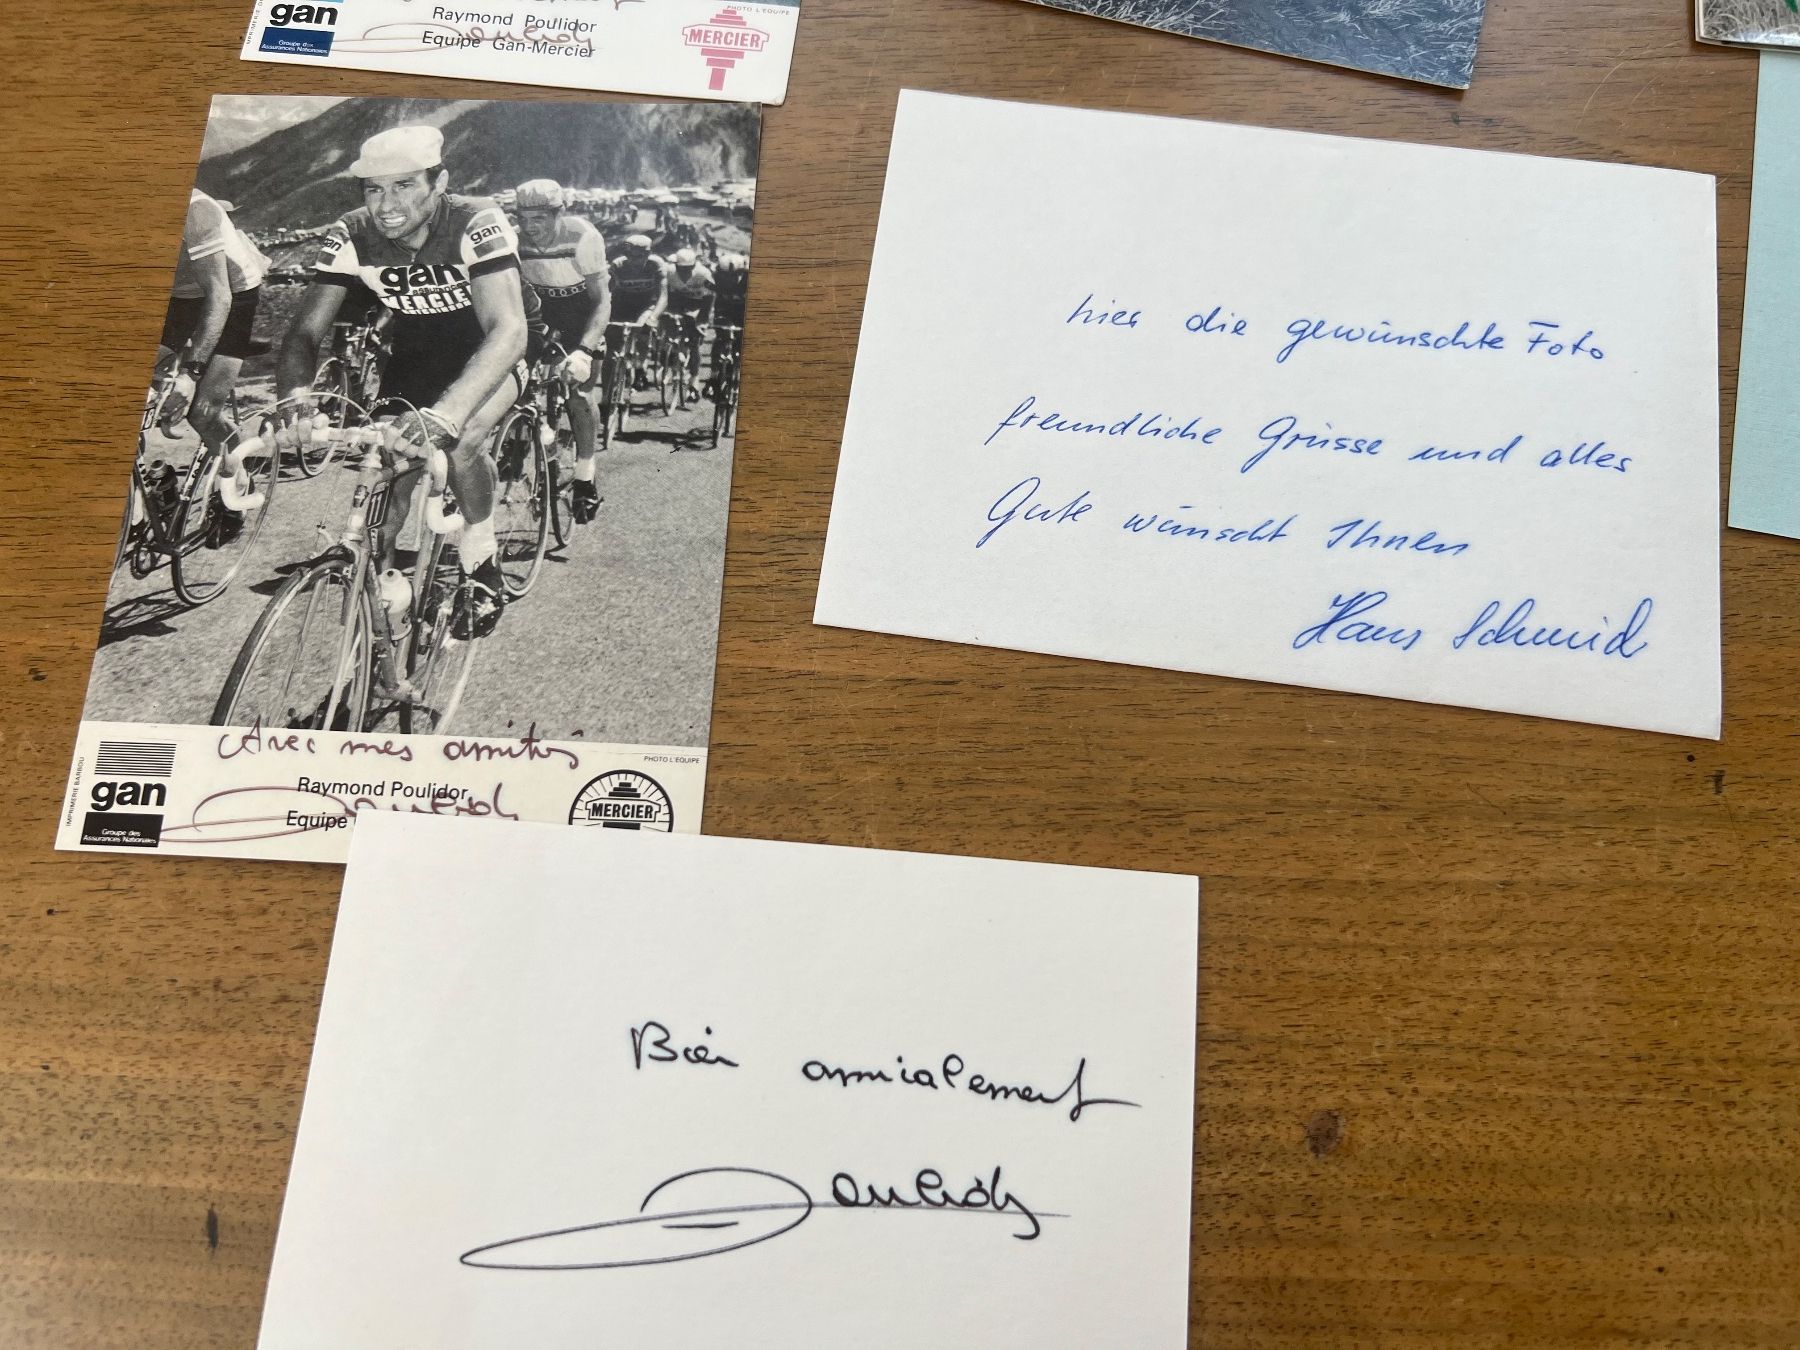 gan
Groupe des
Assurances Nationales
Raymond Poulidor
Equipe Gan-Mercier
PHOTO L'EQUIPE
MERCIER
gan
gan
gan
MERCIER
Avec mes amitiés
IMPRIMERIE BARBOU
gan
Groupe des
Assurances Nationales
Raymond Poulidor
Poulidor
Equipe
PHOTO L'EQUIPE
MERCIER
hier die gewünschte Foto
freundliche Grüsse und alles
Gute wünscht Ihnen
Hans Schmid
Bien amicalement
Poulidor